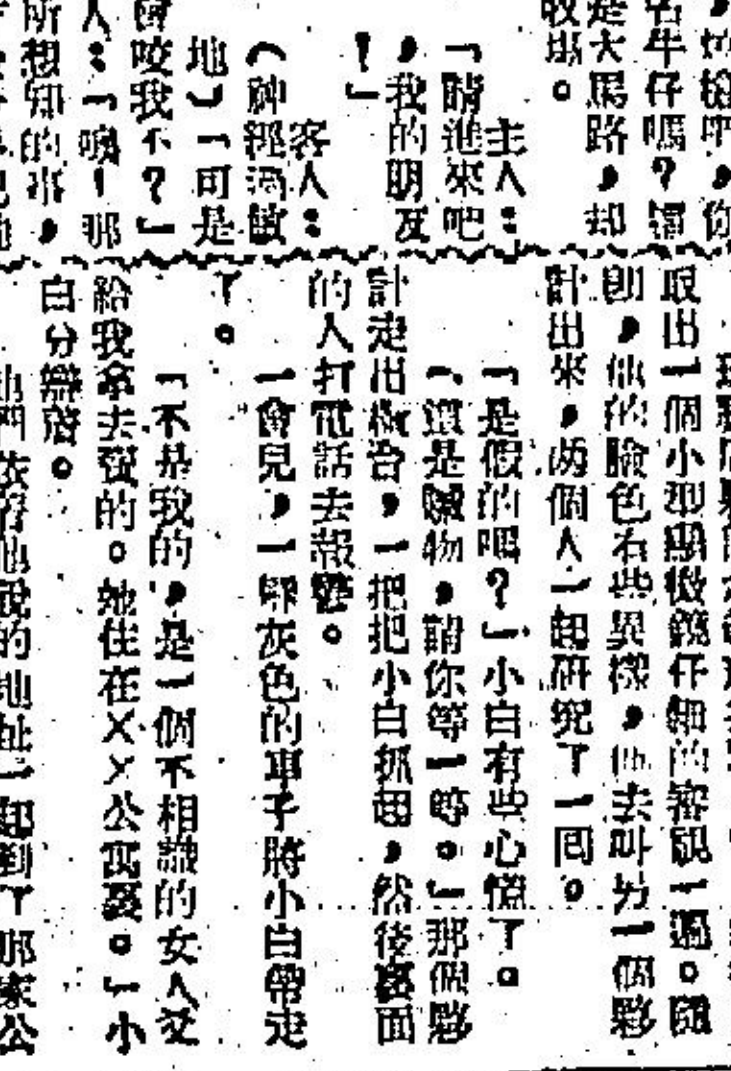 ，你
名牛仔嗎？還
是大馬路，却
收場。
主人：
「請進來吧
，我的朋友
！」
客人：
（神經過敏
地）「可是
會咬我不？」
人：「哦！那
所想知的事，
取出一個小型顯微鏡仔細的審視一遍。隨
即，他的臉色有些異樣，他去叫另一個夥
計出來，两個人一起研究了一回。
「是假的嗎？」小白有些心慌了。
「還是贓物，請你等一等。」那個夥
計走出櫃台，一把把小白抓起，然後裏面
的人打電話去報警。
一會兒，一輛灰色的車子將小白帶走
了。
「不是我的，是一個不相識的女人交
給我拿去賣的。她住在××公寓裏。」小
白分辯着。
他們依着他說的地址一起到了那家公